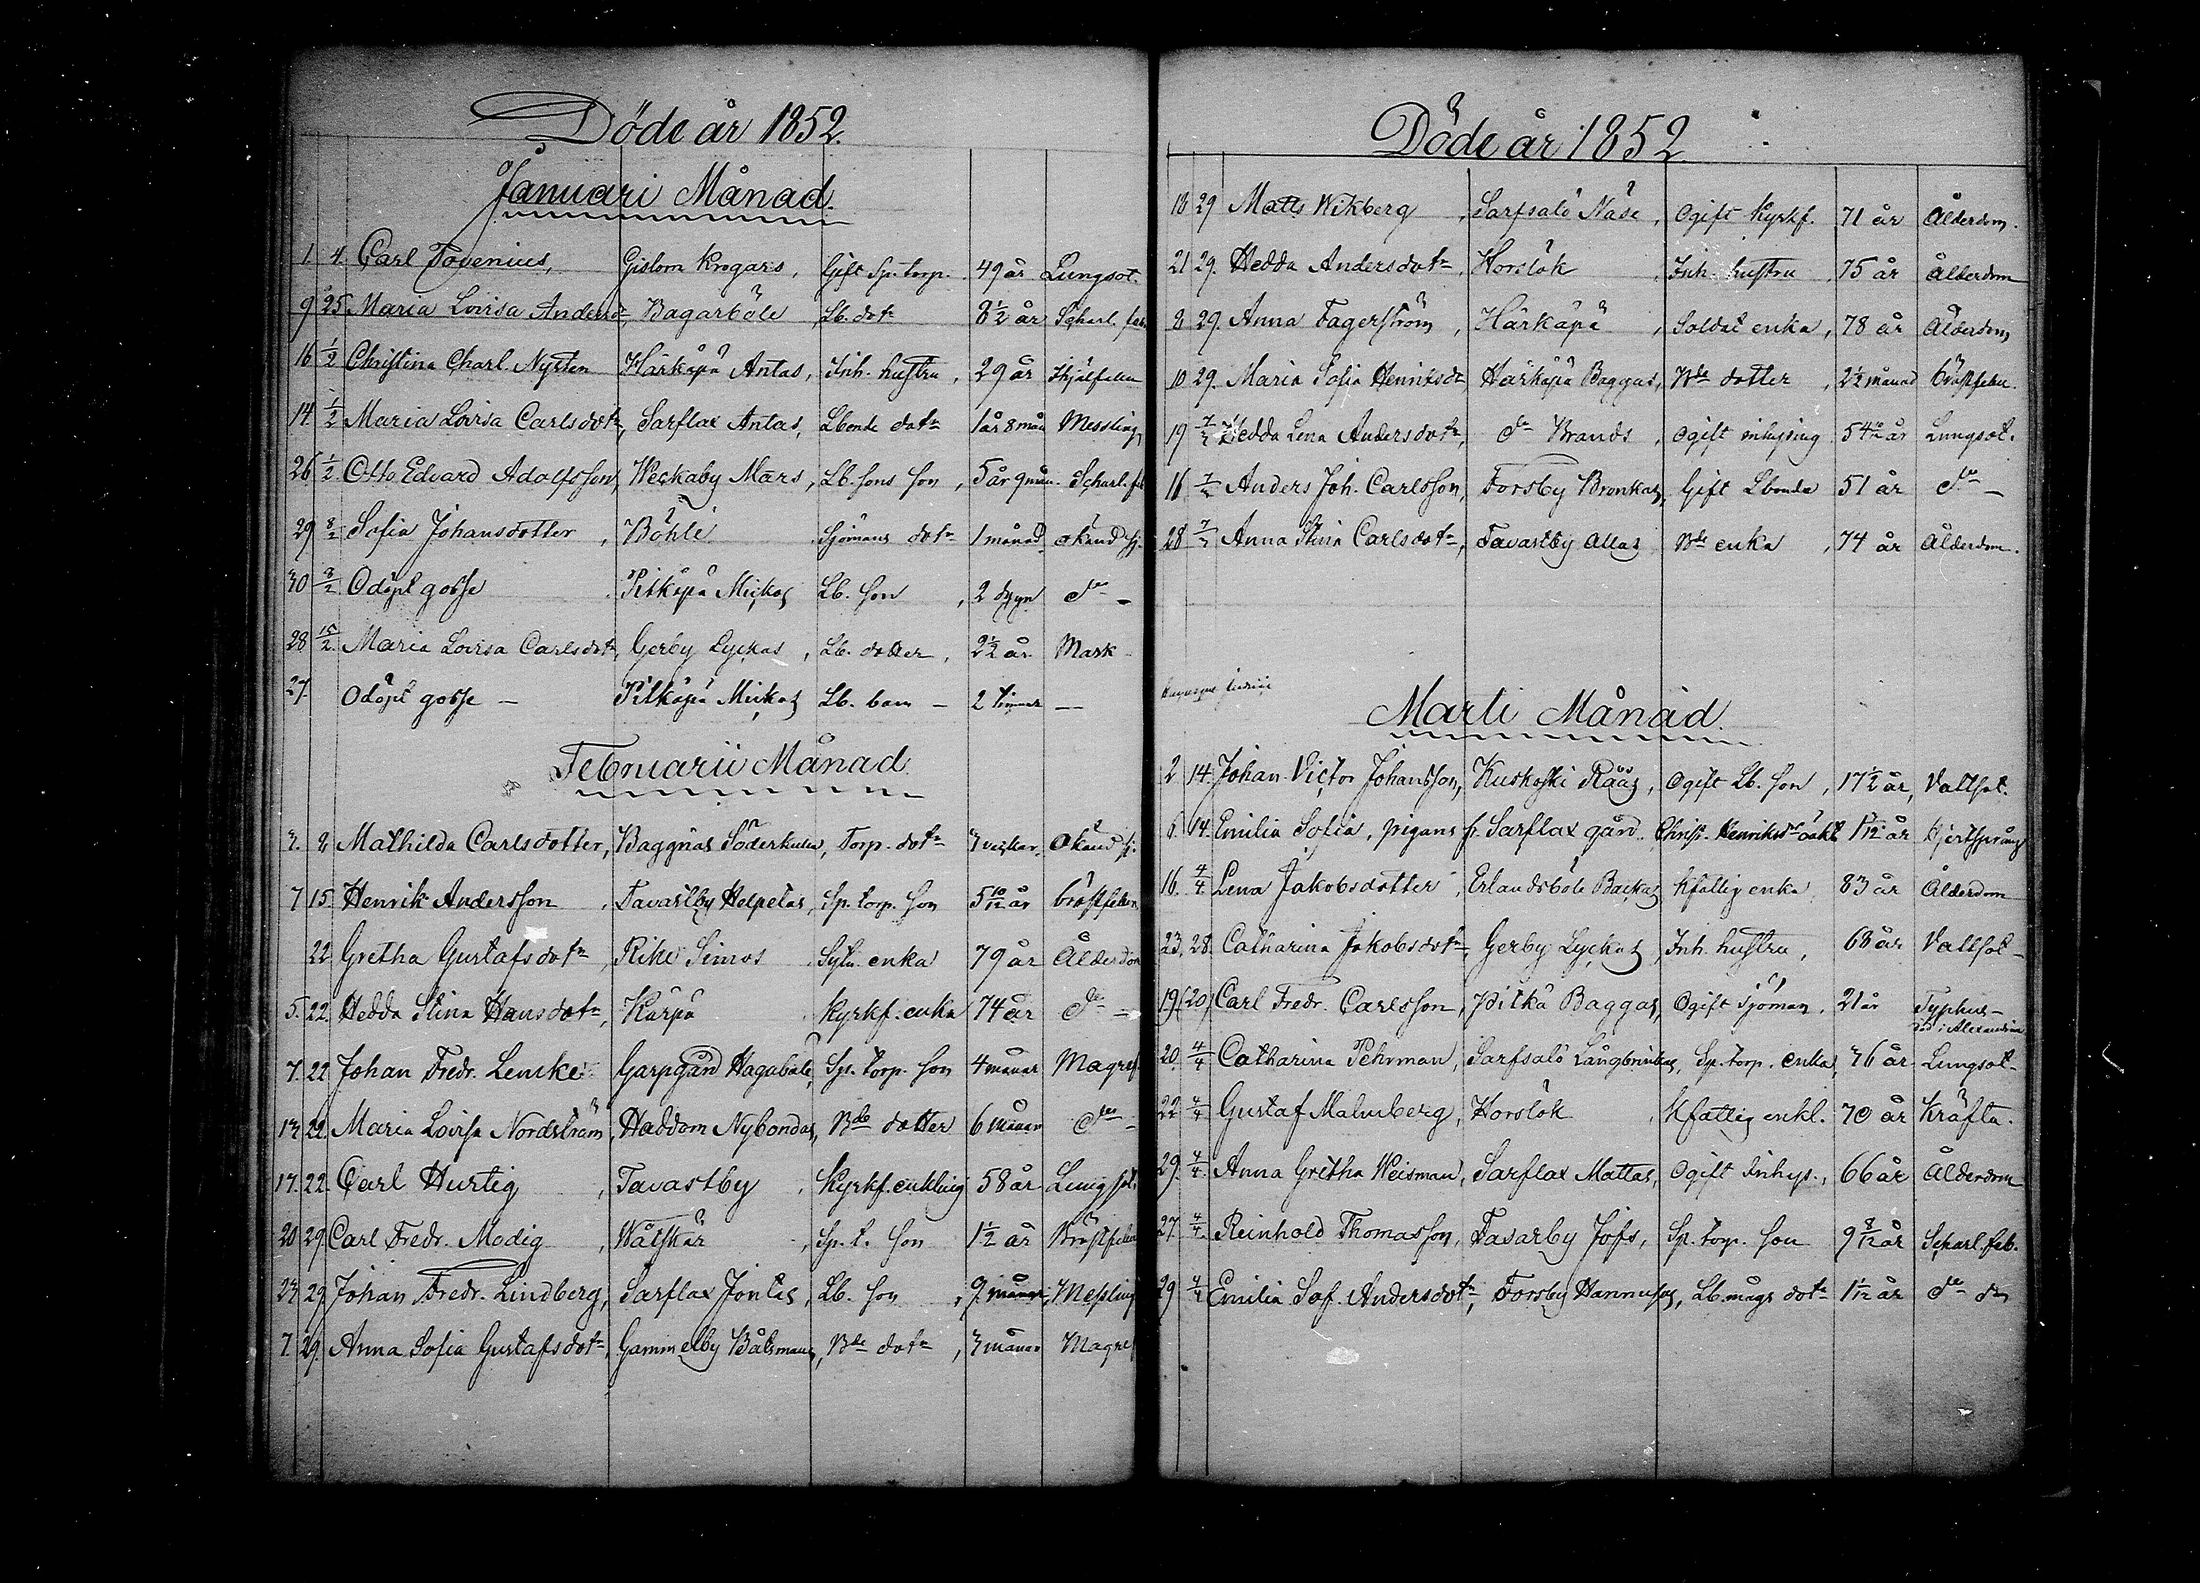 Döde år 1852.
Januari Månad.
1 4. Carl Tovenius, Gislom Krogars, Gift Sp. torp. 49 år Lungsot.
9 25 Maria Lovisa Andersd Bagarböle Lb. dotr 8 1/2 år Scharl. feb.
16 1/2 Christina Charl. Nysten Härkäpä Antas, Inh. hustru, 29 år Ihjälfallen
14 1/2 Maria Lovisa Carlsdotr, Sarflax Antas, Lbonde dotr 1 år 8 mån Messling
26 1/2 Otto Edvard Adolfsson, Weckaby Mårs, Lb. sons son, 5 år 9 mån. Scharl. feb
29 8/2 Sofia Johansdotter, Böhle Sjömans dotr 1 månad okänd sj.
30 8/2 Odöpt gosse Pitkäpä Mickos Lb. son, 2 dygn do -
28 15/2 Maria Lovisa Carlsdotr, Gerby Lyckas, Lb. dotter, 2 1/2 år Mask
27. Odöpt gosse - Pitkäpä Mickos Lb. barn - 2 timmar -
Februarii Månad
3. 8 Mathilda Carlsdotter, Baggnäs Söderkulla, Torp. dotr 3 veckor. Okänd sj.
7 15 Henrik Andersson, Tavastby Helpetas, Sp. torp. son 5 10/12 år bröstfeber
22 Gretha Gustafsdotr, Rike Simos Sytn. enka 79 år Ålderdom
5. 22. Hedda Stina Hansdotr, Kärpä Kyrkf. enka 74 år do -
7. 22 Johan Fredr. Lemke Garpgård Hagaböle, Sp. torp. son 4 månar Magref
13 22. Maria Lovisa Nordström, Haddom Nybondas, Bde dotter 6 månar do -
17. 22. Carl Hurtig, Tavastby, Kyrkf. enkling 58 år Lungsot.
20 29. Carl Fredr. Modig, Wåtskär, Sp. t. son 1 1/2 år Bröstfeber
23 29 Johan Fredr. Lindberg, Sarflax Jontas, Lb. son, 9. månar, Messling
7. 29. Anna Sofia Gustafsdotr, Gammelby Båtsmans, Bde dotr, 3 månar Magref
Döde år 1852
18 29 Matts Wikberg, Sarfsalö Näse, Ogift Kyrkf. 71 år Ålderdom.
21 29. Hedda Andersdotr, Horslök, Inh. hustru 75 år Ålderdom
8 29. Anna Fagerström, Härkäpä, Soldat enka, 78 år Ålderdom
10 29. Maria Sofia Henriksdr Härkäpä Baggas, Bde dotter, 2 1/2 månad bröstfeber.
19 7/3 Hedda Lena Andersdotr, do Brands, Ogift inhysing 54 år Lungsot.
16 7/3 Anders Joh. Carlsson, Forsby Bronkas, Gift Lbonde 51 år do -
28 7/3 Anna Stina Carlsdotr, Tavastby Allas Bde enka, 74 år Ålderdom.
Marti Månad
2 14. Johan Victor Johansson, Kuskoski Råås, Ogift Lb. son, 17 1/2 år, Vattsot.
6. 14. Emilia Sofia, pigans fr. Sarflax gård. Christ. Henriksdr oäkta 1 /12 år Hjertsprång
16. 4/4 Lena Jakobsdotter, Erlandsböle Backas Kfattig enka 83 år Ålderdom
23. 28. Catharina Jakobsdotr, Gerby Lyckas, Inh. hustru, 68 år Vattsot -
19. (20) Carl Fredr. Carlsson, Pitkä Baggas, Ogift Sjöman. 21 år Typhus -
död i Alexandria
20. 4/4 Catharina Pehrman, Sarfsalö Långbrinkas, Sp. torp. enka, 76 år Lungsot -
22 4/4 Gustaf Malmberg, Horslök, Kfattig enkl. 70 år Kräfta.
29. 4/4. Anna Gretha Weisman, Sarflax Mattas, Ogift Inhys., 66 år Ålderdom
27. 4/4 Reinhold Thomasson, Tavarby Jofs, Sp. torp. son 9 8/12 år Scharl. feb.
29 4/4 Emilia Sof. Andersdotr, Forsby Hannusas, Lb. mågs dotr 1 1/12 år do do